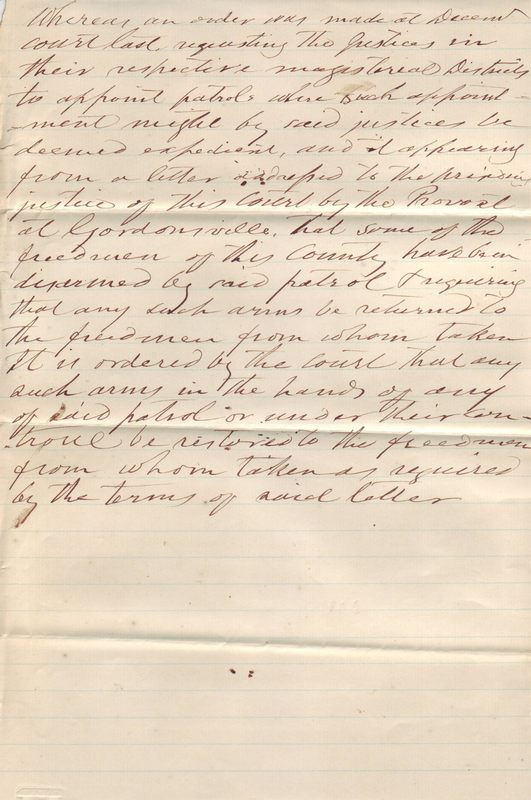 Whereas an order was made at Decemr
court last, requesting the Justices in
their respective magisterial Districts
to appoint patrols where such appoint-
-ment might by said justices be
deemed expedient, and it appearing
from a letter addressed to the presiding
justice of this court by the Provost
at Gordonsville, that some of the
freedmen of this County have been
disarmed by said patrol & requiring
that any such arms be returned to
the freedmen from whom taken
It is ordered by the court that any
such arms in the hands of any
of said patrol or under their con
troul be restored to the freedmen
from whom taken as required
by the terms of said letter